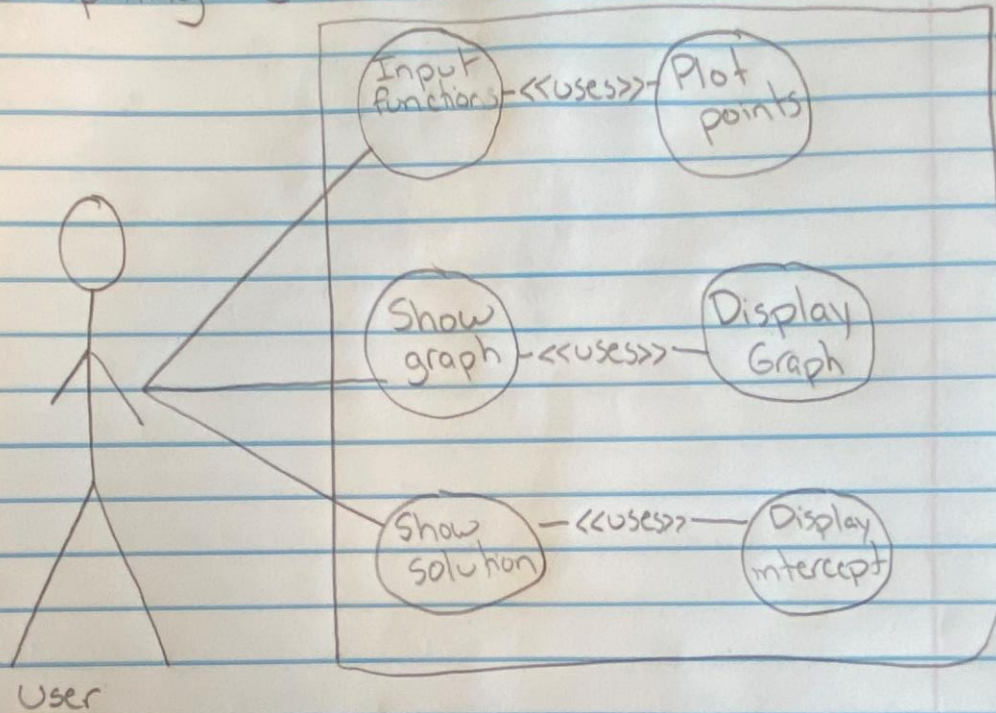 Input
functions
<<uses>>
Plot
points
Show
graph
<<uses>>
Display
Graph
Show
solution
<<uses>>
Display
intercept
User